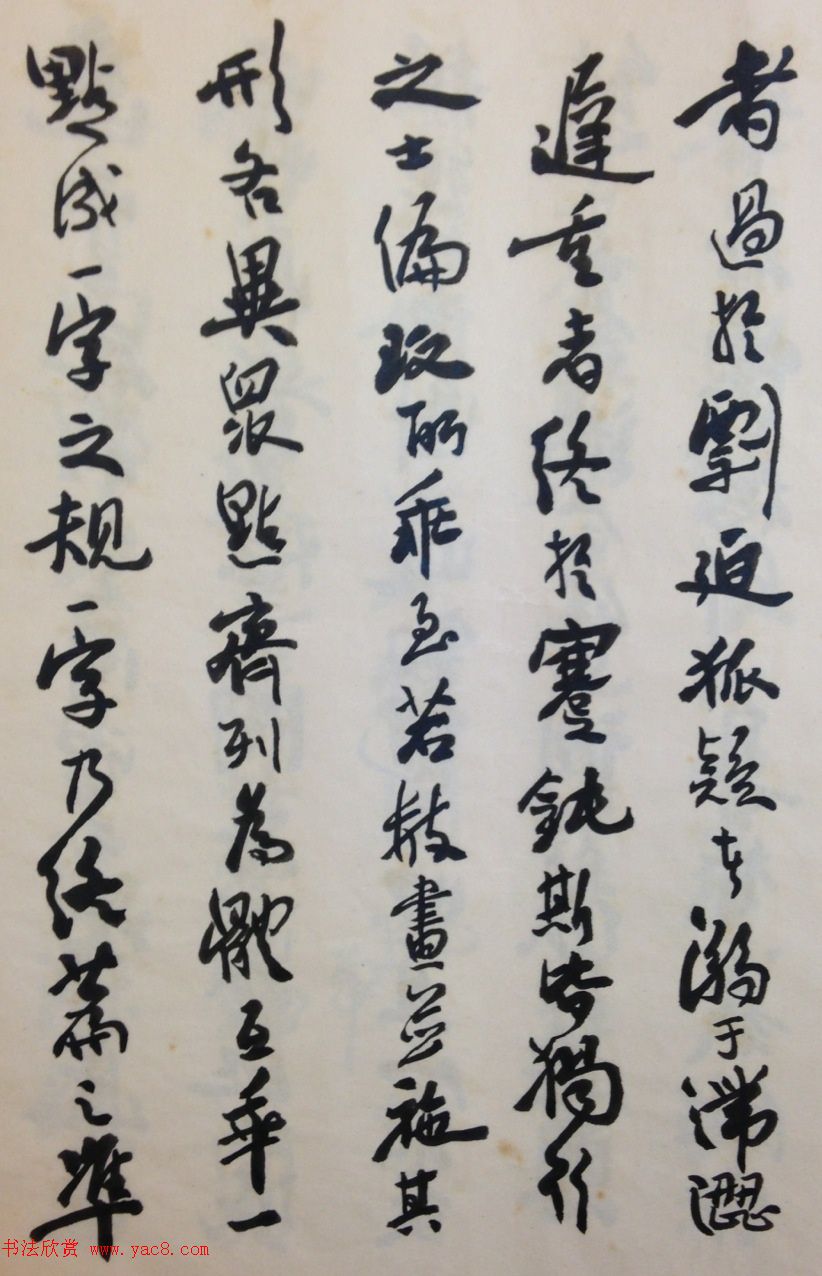 者過於剽迫狐疑者溺于滯澀
遲重者終於蹇鈍斯皆獨行
之士偏玩所乖至若數畫並施其
形各異眾點齊列為體互乖一
點成一字之規一字乃終篇之準
书法欣赏 www.yac8.com